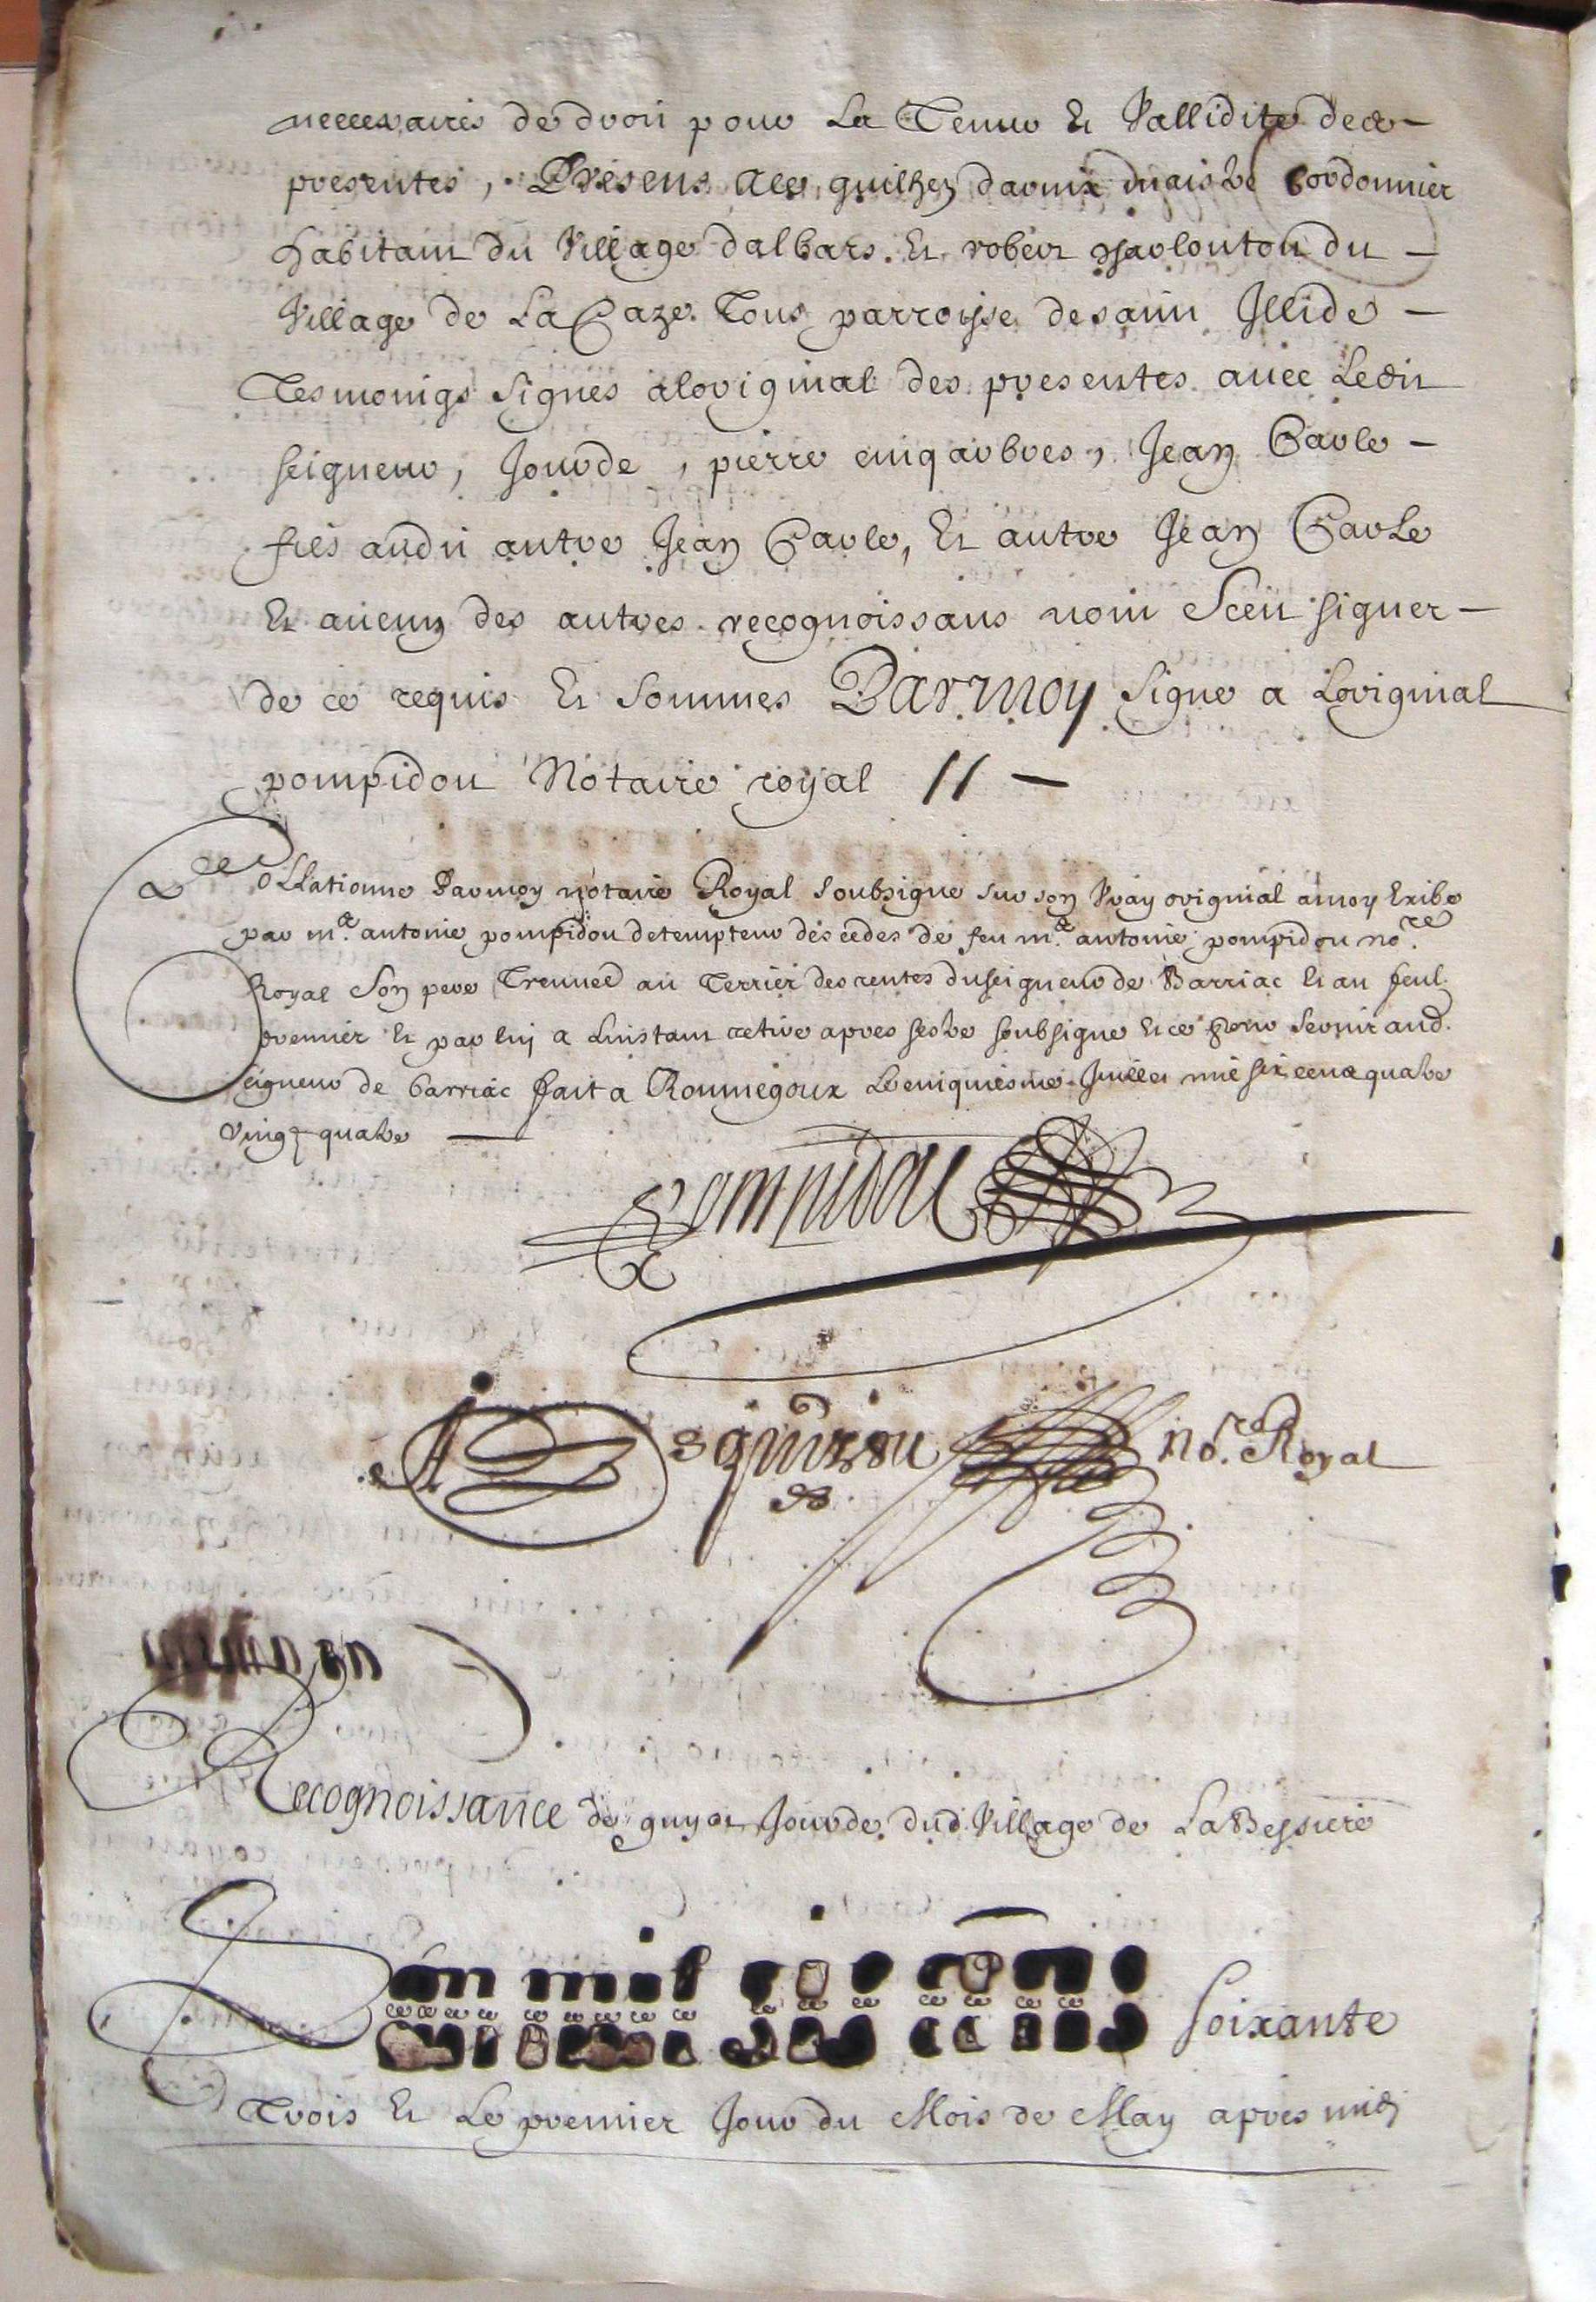 neccessaires de droit pour La Teneur Et Vallidite de ces
presentes, Presens a ce, guilhen daruix maistre Cordonnier
habitant du Village dalbars. Et robert du
Village de La Caze Tous parroisse de saint Illide
Tesmoings signes a loriginal des presentes avec Ledit
seigneur, Jourde, pierre cinqarbres, Jean Carle
fils audit autre Jean Carle, Et autre Jean Carle
Et aucuns des autres recognoissans nont Sceu signer
de ce requis Et sommes Par moy signe a Loriginal
pompidou Notaire royal //
Collationne Par moy notaire Royal soubsigne sur son Vray original a moy Exibe
par me antoine pompidou detempteur des cedes de feu me antoine pompidou nore
Royal Son pere au Terrier des rentes du seigneur de Barriac Et au feul.
premier Et par luy a Linstant retire apres sestre soubsigne Et ce pour servir aud.
seigneur de barriac fait a Roumegoux Le cinquiesme Juillet mil six cens quatre
vingt quatre
Pompidou
nore Royal
Recognoissance de guyot Jourde dud. Village de La Bessiere
Lan mil six cens Soixante
Trois Et Le premier Jour du Mois de May apres midy